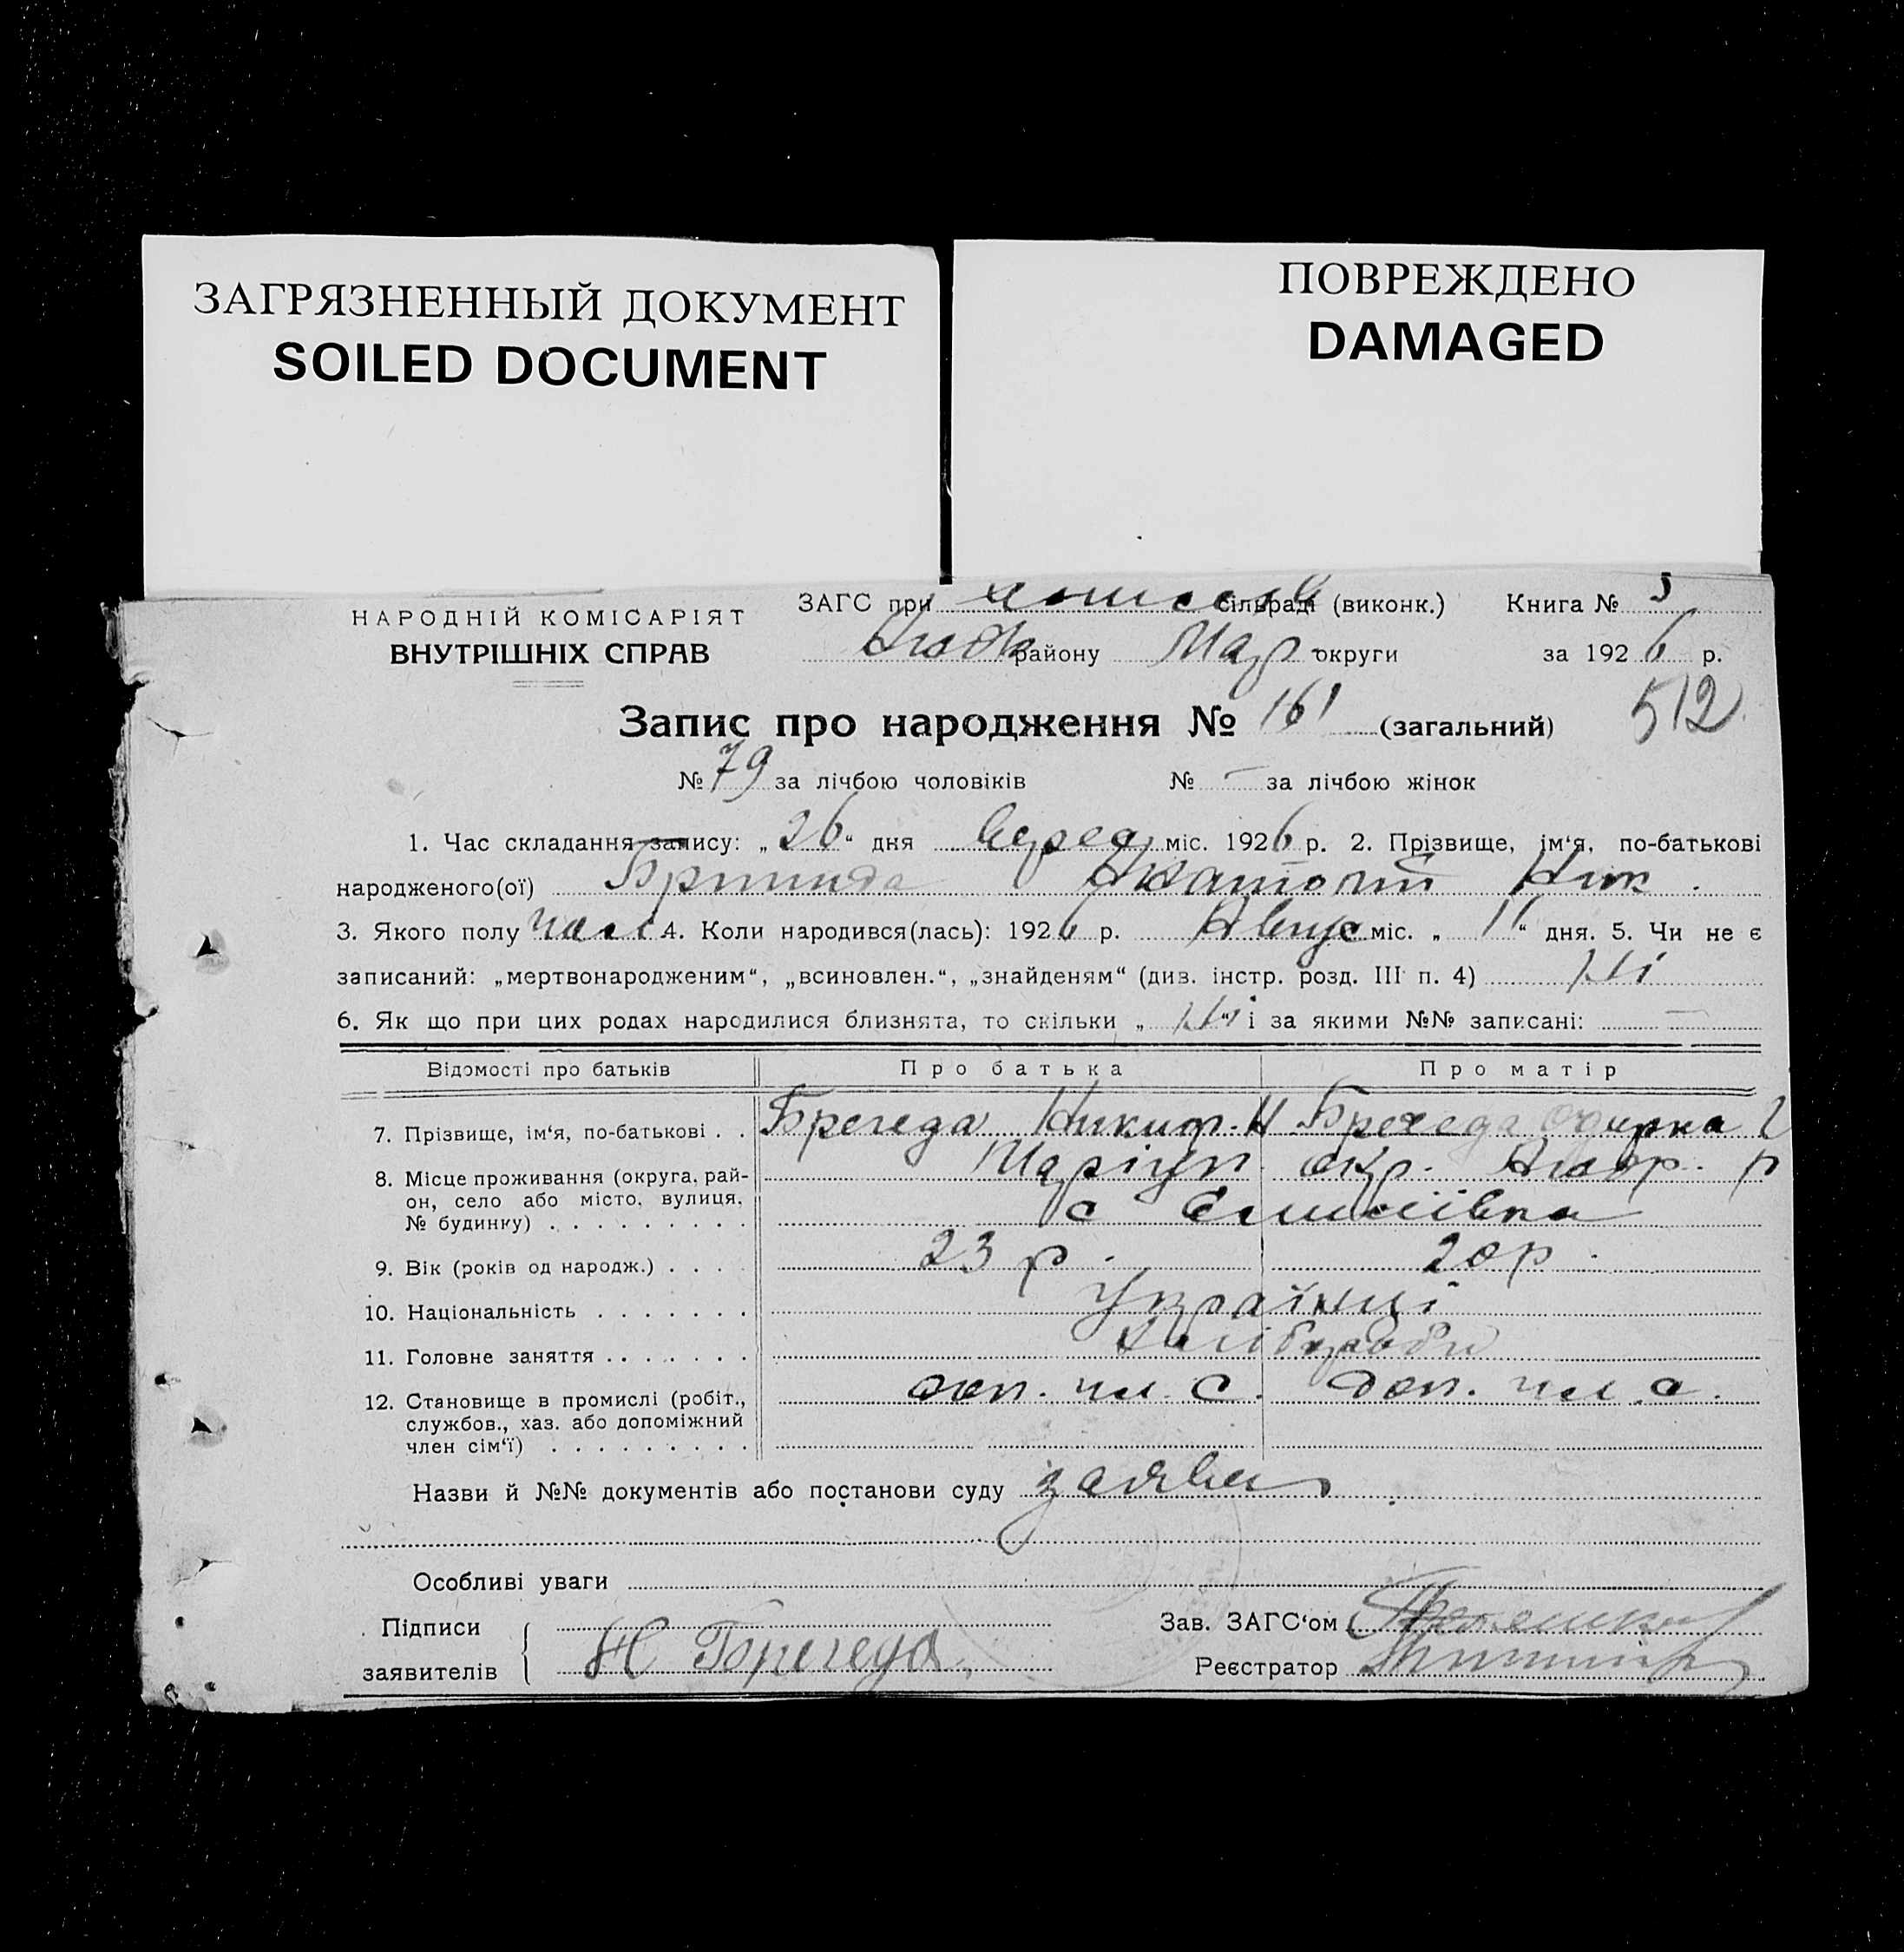 ЗАГРЯЗНЕННЫЙ ДОКУМЕНТ
SOILED DOCUMENT
ПОВРЕЖДЕНО
DAMAGED
НАРОДНІЙ КОМІСАРІЯТ
ВНУТРІШНІХ СПРАВ
ЗАГС при сільраді (виконк.) Книга №
району Мар округи за 1926 р.
Запис про народження № 161 (загальний) 512
№ 79 за лічбою чоловіків № — за лічбою жінок
1. Час складання запису: „26“ дня верес міс. 1926 р. 2. Прізвище, ім‘я, по-батькові
народженого(ої) Анатолій Ник.
3. Якого полу чол 4. Коли народився(лась): 1926 р. Авгус міс. „ “ дня. 5. Чи не є
записаний: „мертвонародженим“, „всиновлен.“, „знайденям“ (див. інстр. розд. III п. 4) Ні
6. Як що при цих родах народилися близнята, то скільки „Ні“ і за якими №№ записані: —
Відомості про батьків Про батька Про матір
7. Прізвище, ім‘я, по-батькові . . Брегеда Никиф. Н Брегеда
8. Місце проживання (округа, рай- Маріуп. окр. р
он, село або місто, вулиця, с
№ будинку) . . . . . . . . .
9. Вік (років од народж.) . . . . 23 р. 20 р.
10. Національність . . . . . . . Українці
11. Головне заняття . . . . . . . Хліборобы
12. Становище в промислі (робіт., доп. чл. с. доп. чл. с.
службов., хаз. або допоміжний
член сім‘ї) . . . . . . . . .
Назви й №№ документів або постанови суду заява
Особливі уваги
Підписи
заявителів Н Брегеда.
Зав. ЗАГС‘ом
Реєстратор